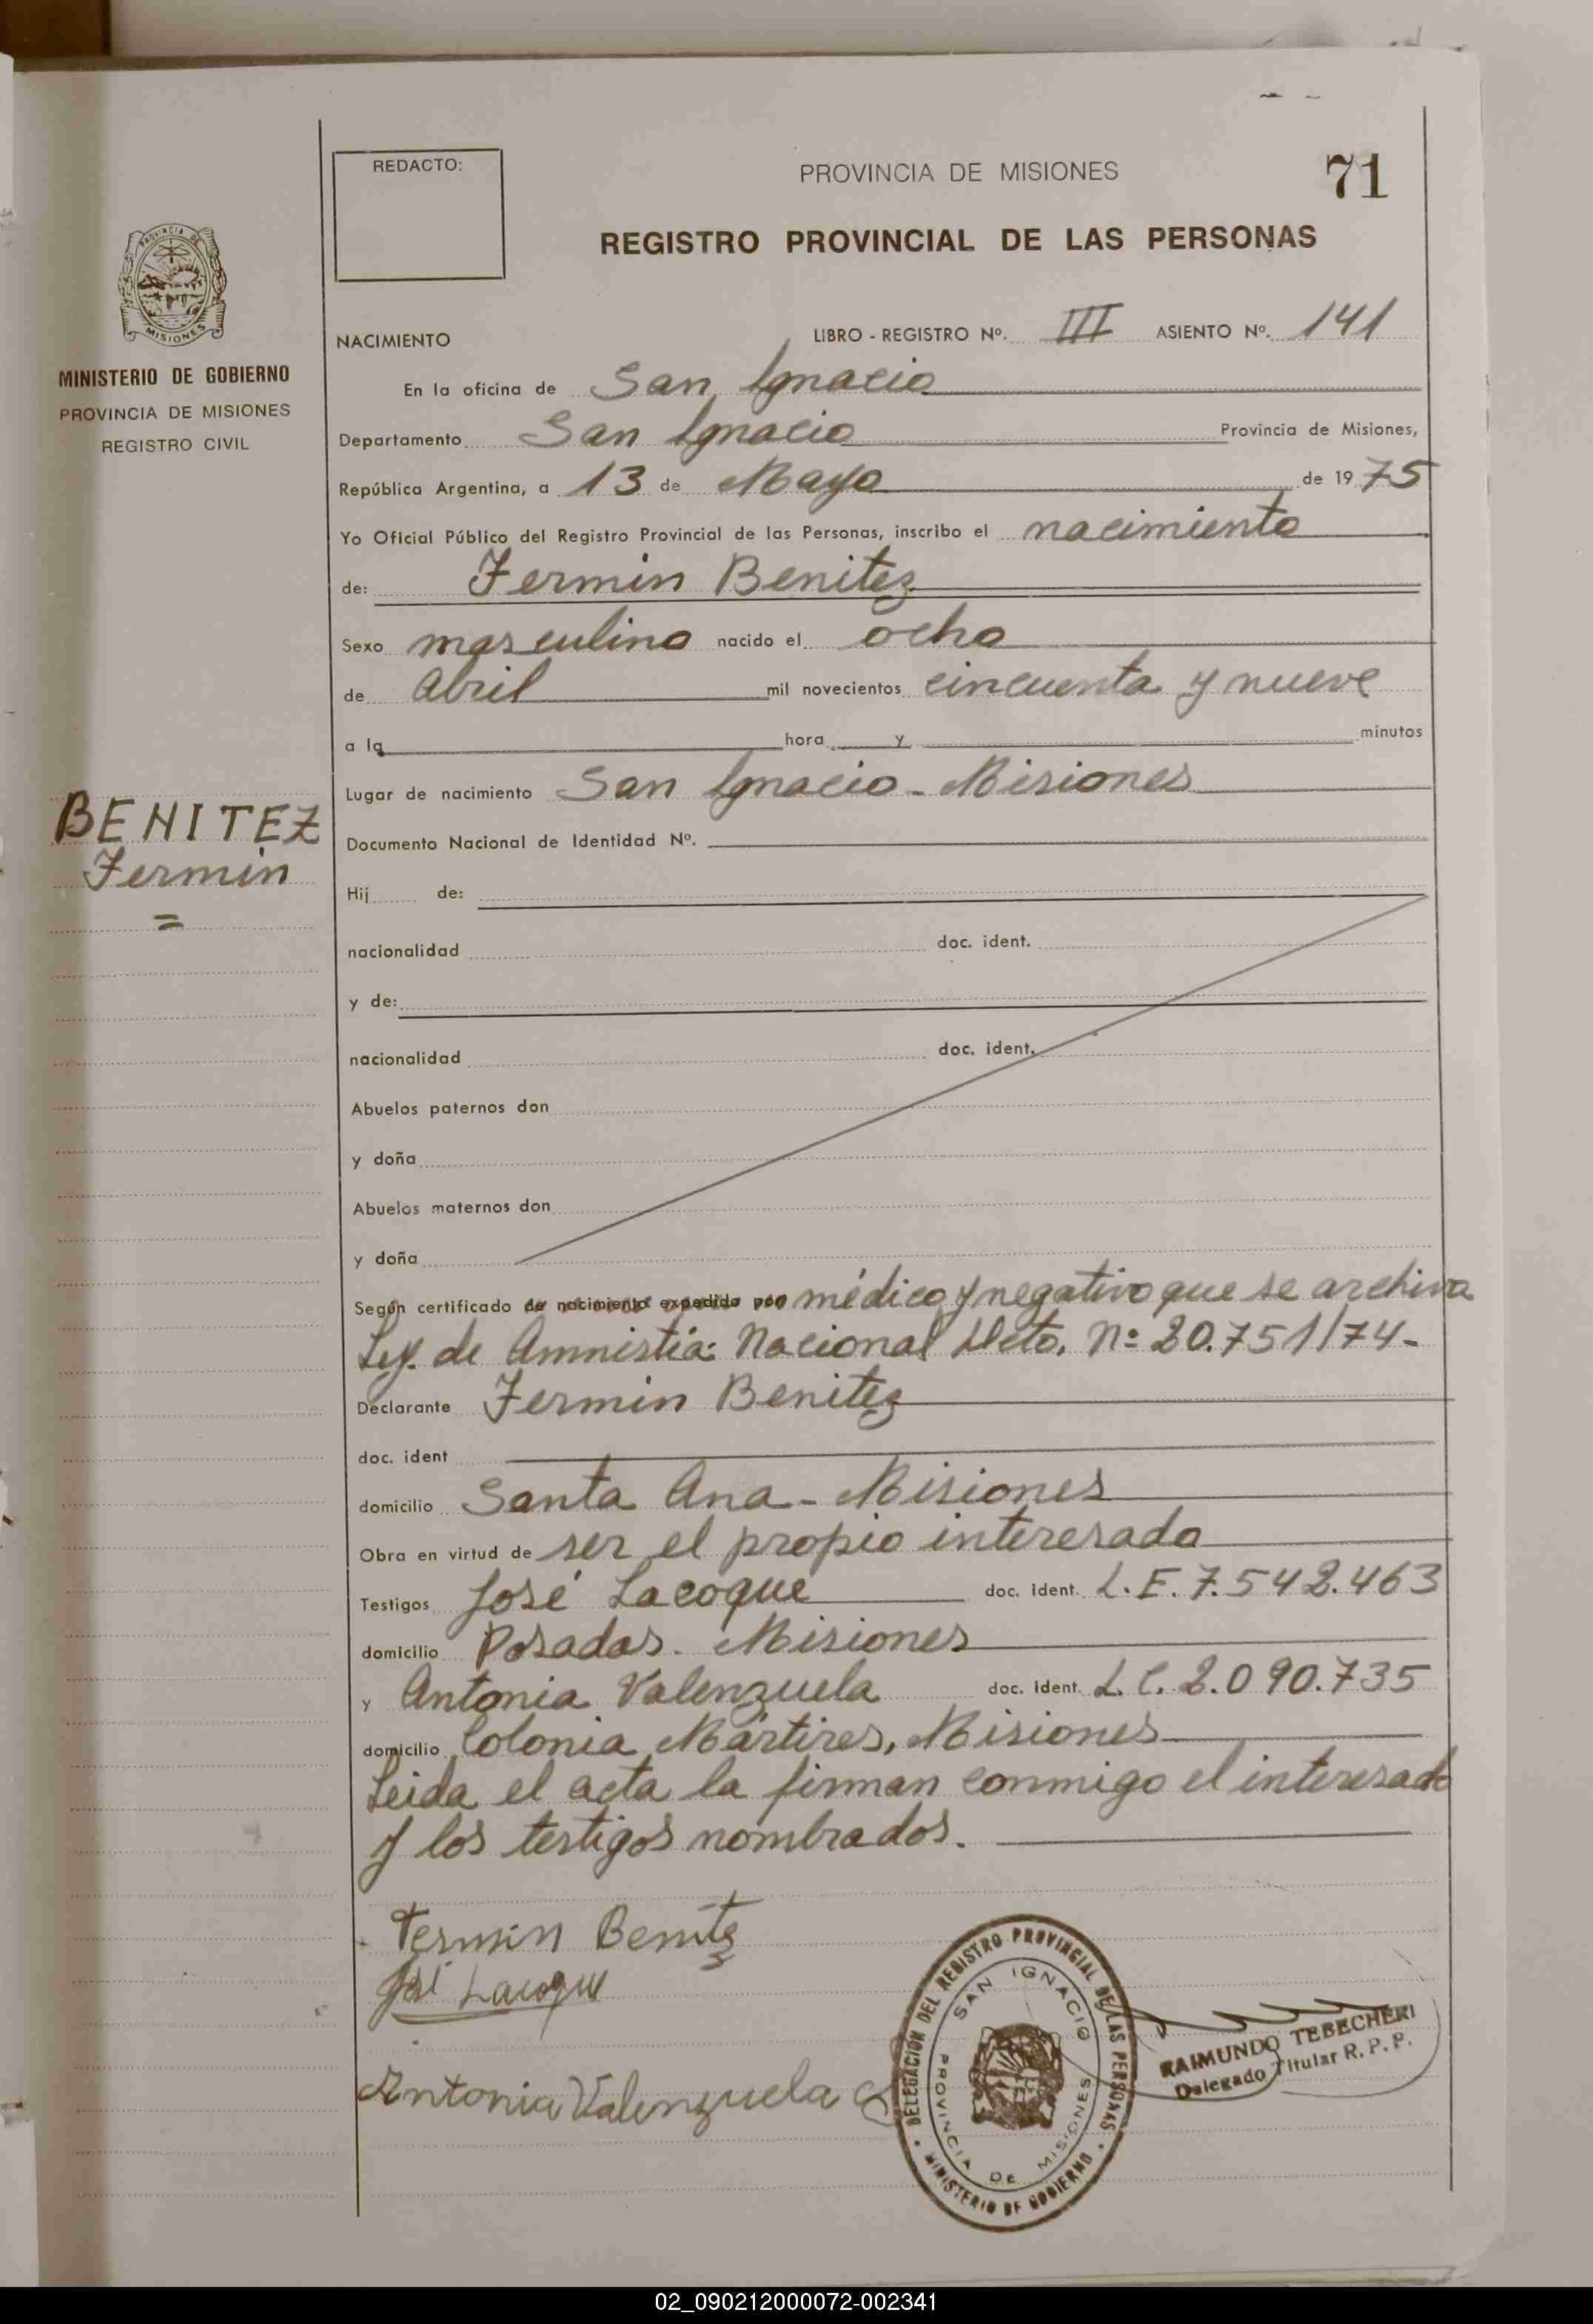 REDACTO:
PROVINCIA DE MISIONES
71
REGISTRO PROVINCIAL DE LAS PERSONAS
PROVINCIA DE
MISIONES
MINISTERIO DE GOBIERNO
PROVINCIA DE MISIONES
REGISTRO CIVIL
NACIMIENTO LIBRO - REGISTRO Nº. III ASIENTO Nº. 141
En la oficina de San Ignacio
Departamento San Ignacio Provincia de Misiones,
República Argentina, a 13 de Mayo de 1975
Yo Oficial Público del Registro Provincial de las Personas, inscribo el nacimiento
de: Fermin Benitez
Sexo masculino nacido el ocho
de Abril mil novecientos cincuenta y nueve
a la hora y minutos
Lugar de nacimiento San Ignacio - Misiones
BENITEZ
Fermin
=
Documento Nacional de Identidad Nº.
Hij de:
nacionalidad doc. ident.
y de:
nacionalidad doc. ident.
Abuelos paternos don
y doña
Abuelos maternos don
y doña
Según certificado de nacimiento expedido por médico y negativo que se archiva
Ley de Amnistía Nacional Dcto. Nº 20.751/74-
Declarante Fermin Benitez
doc. ident
domicilio Santa Ana - Misiones
Obra en virtud de ser el propio interesado
Testigos José Lacoque doc. ident. L.E. 7.542.463
domicilio Posadas. Misiones
y Antonia Valenzuela doc. ident. L.C. 2.090.735
domicilio Colonia Mártires, Misiones
Leida el acta la firman conmigo el interesado
y los testigos nombrados.
Fermin Benitez
José Lacoque
Antonia Valenzuela
DELEGACION DEL REGISTRO PROVINCIAL DE LAS PERSONAS
SAN IGNACIO
PROVINCIA DE MISIONES
MINISTERIO DE GOBIERNO
RAIMUNDO TEBECHERI
Delegado Titular R. P. P.
02_090212000072-002341